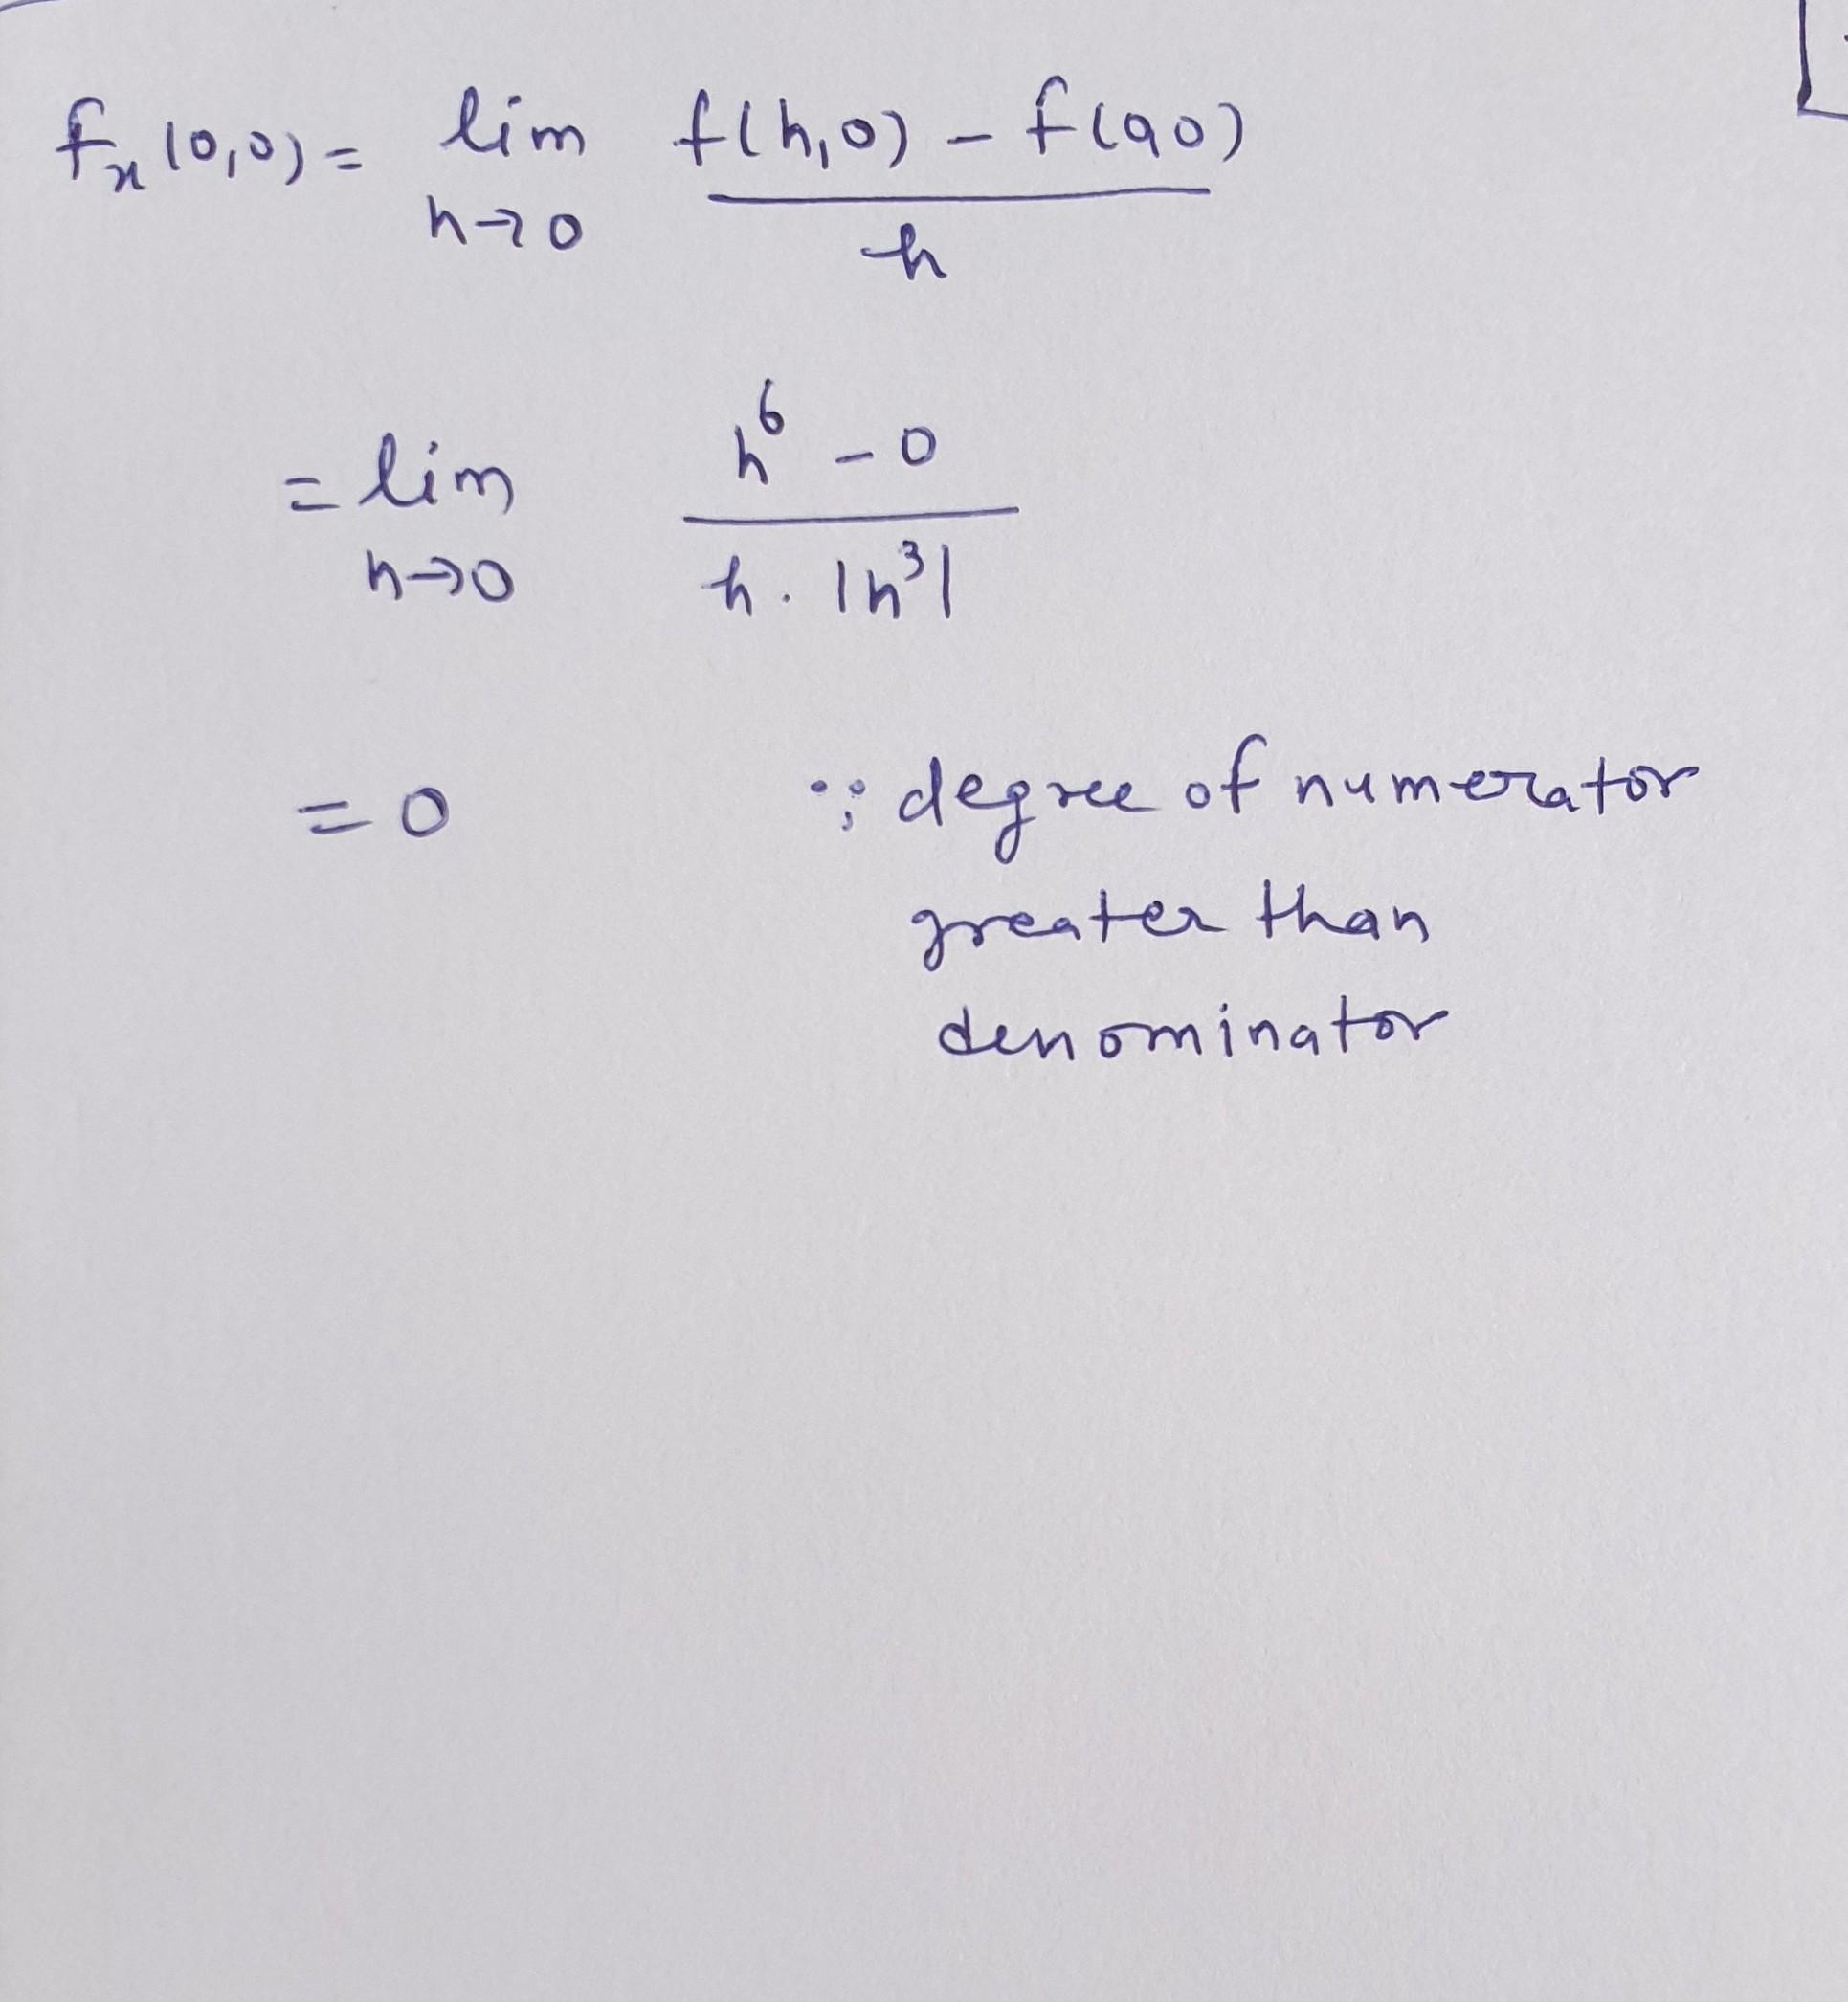 fx(0,0) = lim f(h,0) - f(0,0)
h→0 h
= lim h⁶ - 0
h→0 h. |h³|
= 0 ∵ degree of numerator
greater than
denominator